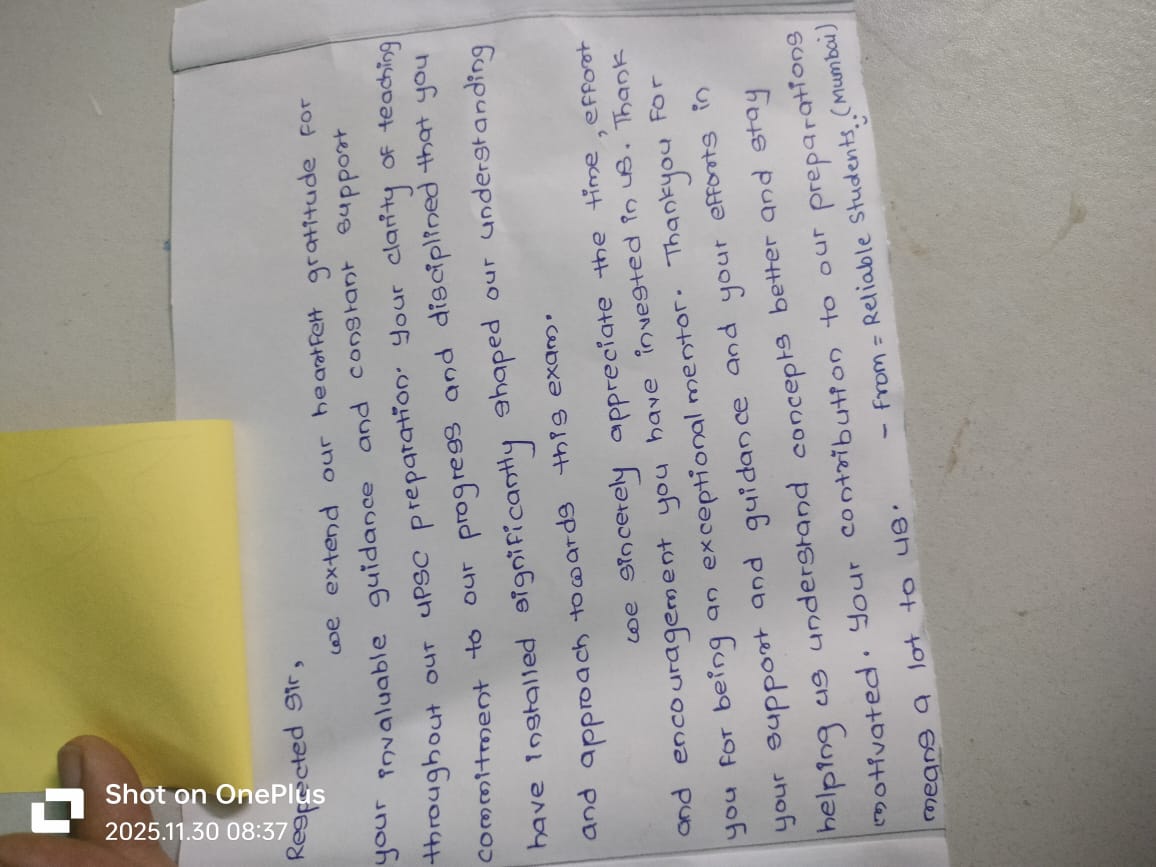 Respected Sir,
we extend our heartfelt gratitude for
your invaluable guidance and constant support
throughout our UPSC preparation. Your clarity of teaching
commitment to our progress and disciplined that you
have installed significantly shaped our understanding
and approach towards this exam.
we sincerely appreciate the time, effort
and encouragement you have invested in us. Thank
you for being an exceptional mentor. Thankyou for
your support and guidance and your efforts in
helping us understand concepts better and stay
motivated. Your contribution to our preparations
means a lot to us.
- From = Reliable Students. (Mumbai)
Shot on OnePlus
2025.11.30 08:37